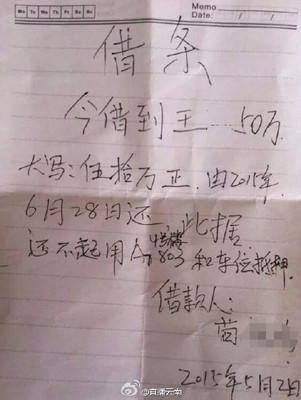 Mo Tu We Th Fr Sa Su
Memo
Date: / /
借条
今借到王 50万
大写:伍拾万正.由2015年
6月28日还 此据
还不起用A 803和车位抵押.
借款人:
苗
2015年5月2日
@直播云南